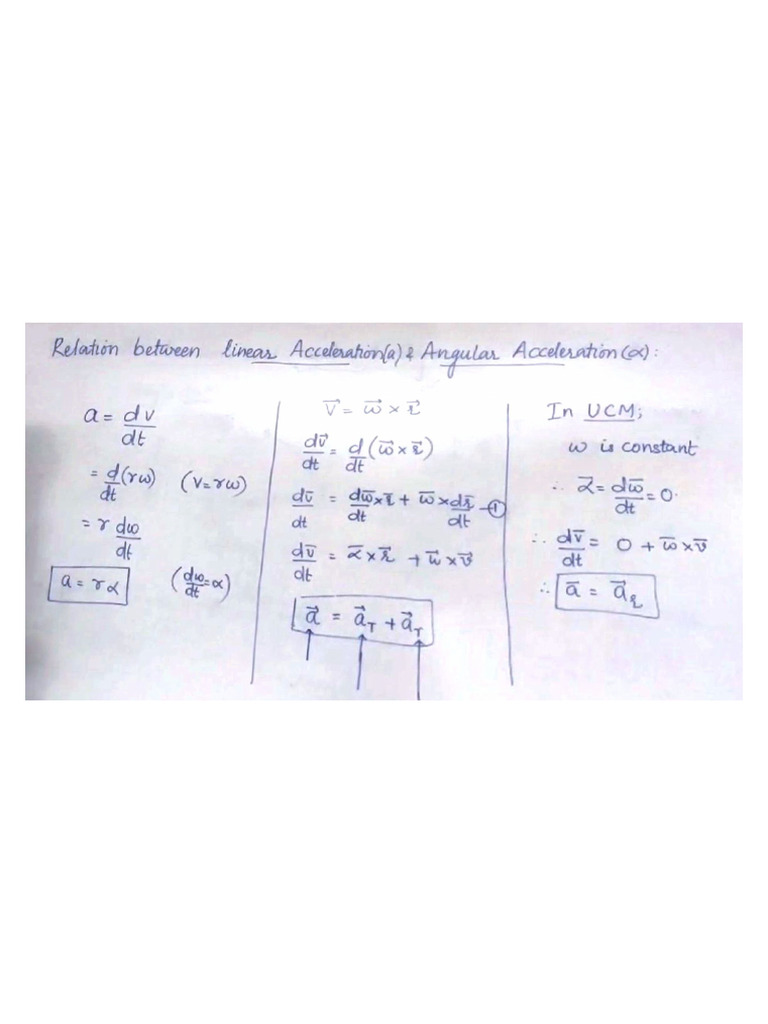 Relation between linear Acceleration(a) & Angular Acceleration(α):
a = dv/dt
= d/dt (rω) (v=rω)
= r dω/dt
a = rα (dω/dt = α)
v⃗ = ω⃗ × r⃗
dv⃗/dt = d/dt (ω⃗ × r⃗)
dv̄/dt = dω̄/dt × r̄ + ω̄ × dr̄/dt —①
dv̄/dt = α̅ × r̄ + ω̄ × v̄
a⃗ = a⃗_T + a⃗_T
In UCM;
ω is constant
∴ α̅ = dω̄/dt = 0.
∴ dv̄/dt = 0 + ω̄ × v̄
∴ a̅ = a⃗_r